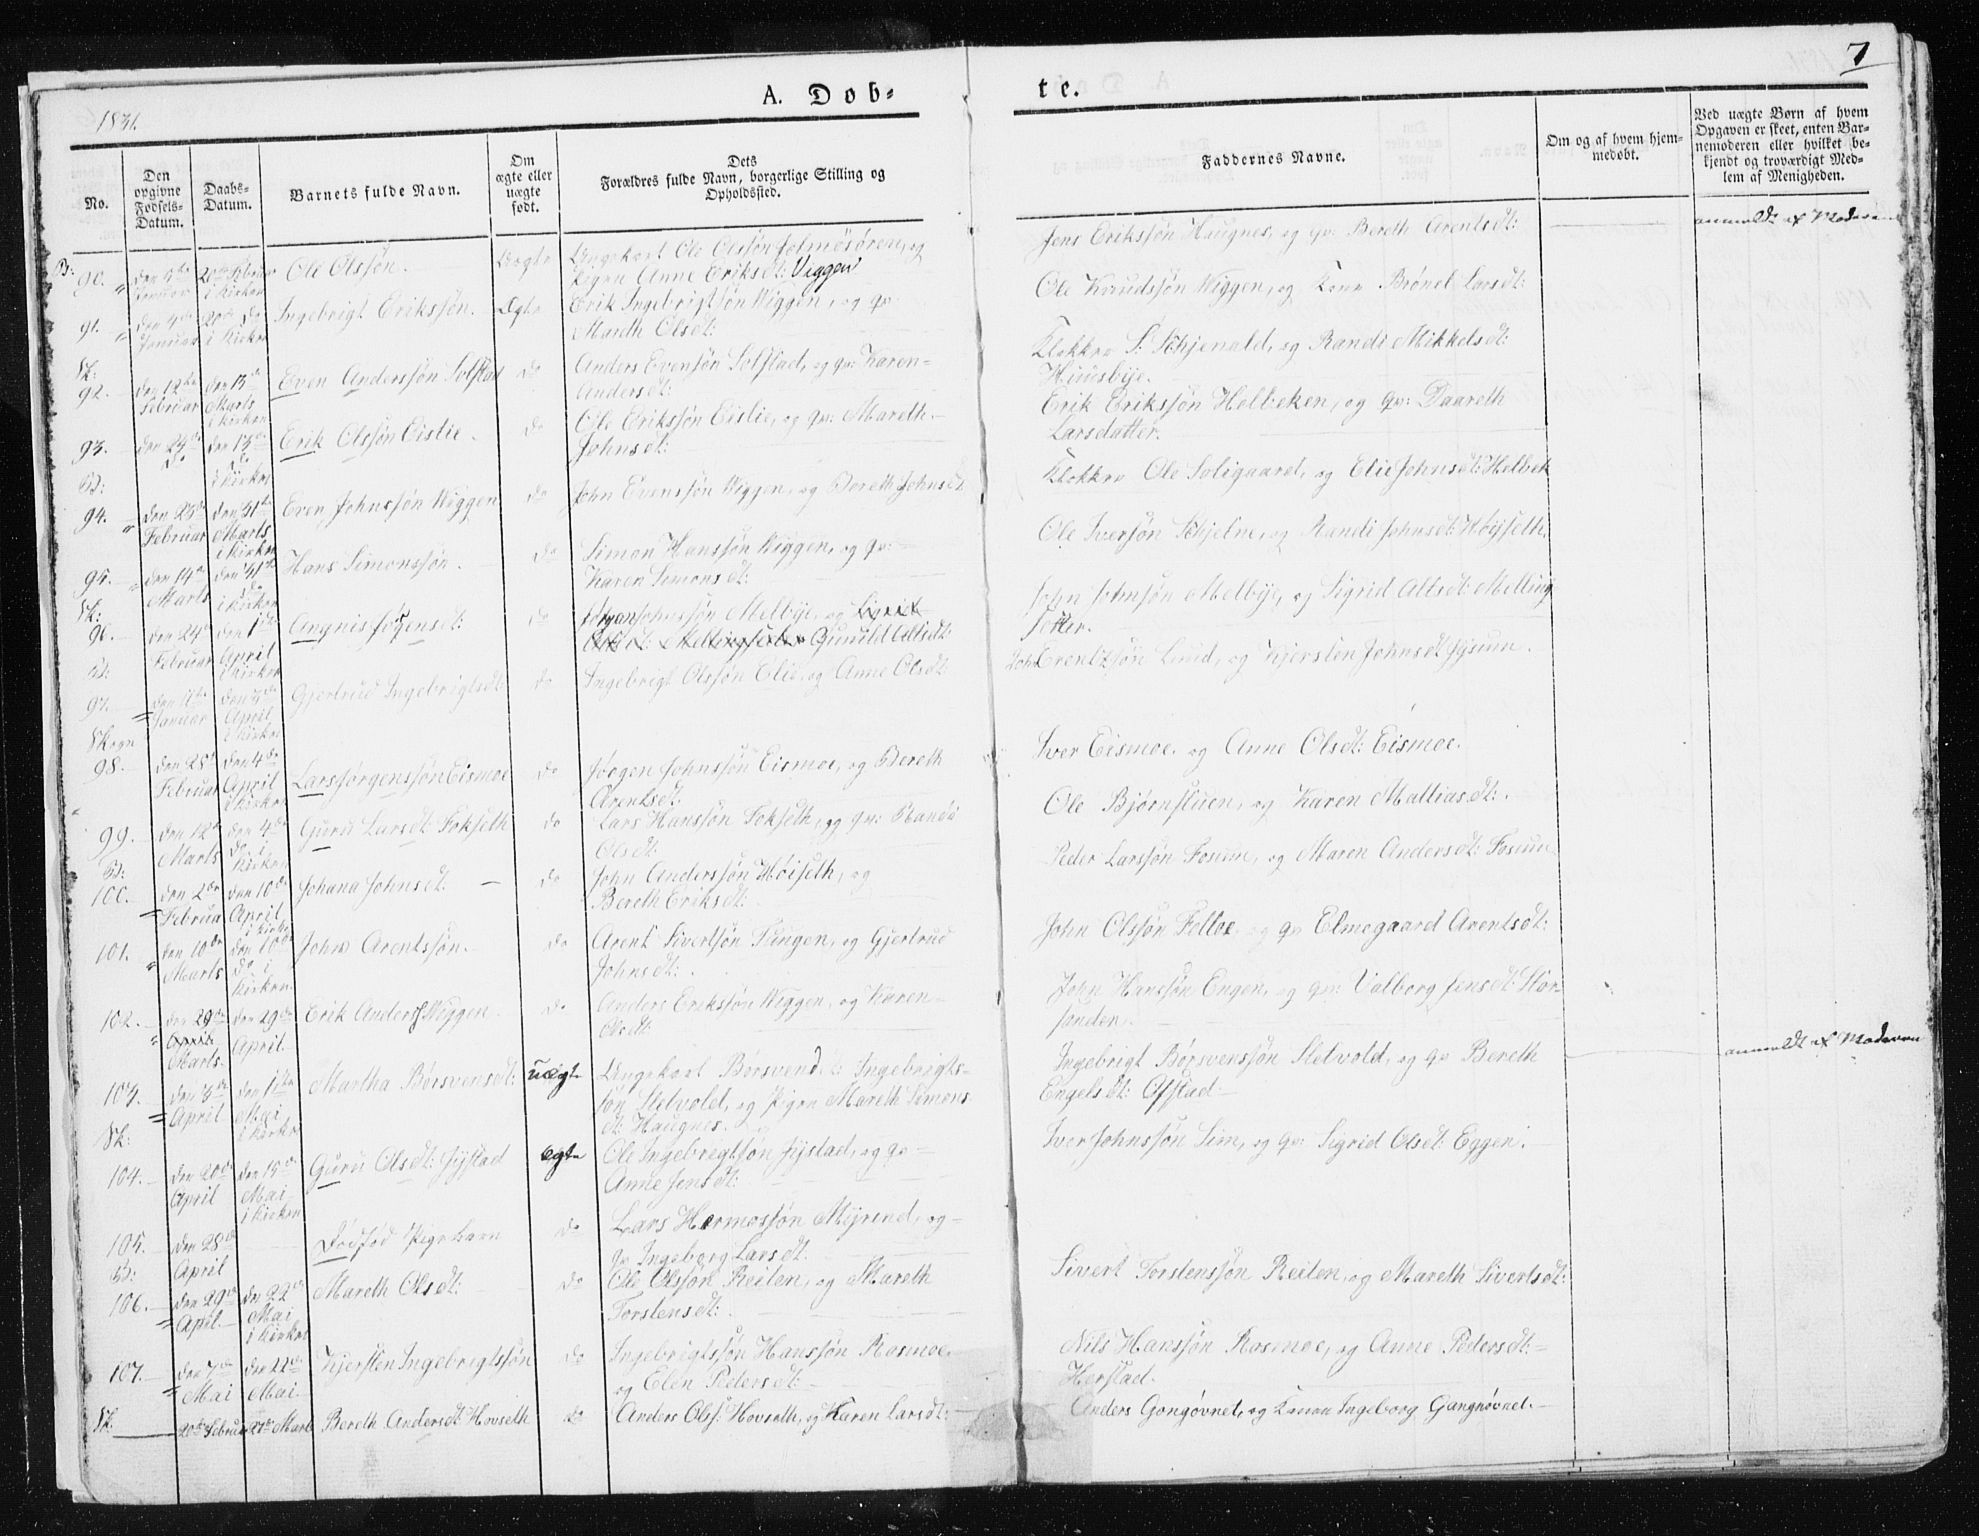 7
1831.
A. Døb-
te.
No.
Den
opgivne
Fødsels-
Datum.
Daabs-
Datum.
Barnets fulde Navn.
Om
ægte eller
uægte
født.
Dets
Forældres fulde Navn, borgerlige Stilling og
Opholdssted.
Faddernes Navne.
Om og af hvem hjem-
medøbt.
Ved uægte Børn af hvem
Opgaven er skeet, enten Bar-
nemoderen eller hvilket be-
kjendt og troværdigt Med-
lem af Menigheden.
B:
90. Januar i Kirken Ole Olssøn. Uægte Ungekarl Ole Olssøn og
Pigen Anne Eriksdt: Viggen
Jens Erikssøn Haugnes, og qv: Bereth Arentsdt: anmeldt af Moderen
91. Januar i Kirken Ingebrigt Erikssøn. Ægte Erik Ingebrigtsøn Wiggen, og qv:
Mareth Olsdt:
Ole Knudssøn Wiggen, og Kone Brønel Larsdt:
Sk:
92. den 12te Februar Marts i Kirken Even Anderssøn Solstad do Anders Evensøn Solstad, og qv: Karen
Andersdt:
Klokker S: Skjevald, og Randi Mikkelsdt:
Huusbye.
93. do i Kirken Erik Olsøn Eislie. do Ole Erikssøn Eislie, og qv: Mareth
Johnsdt:
Erik Erikssøn Helbeken, og qv: Daareth
Larsdatter.
B:
94. Februar Marts i Kirken Even Johnssøn Wiggen do John Evenssøn Wiggen, og Bereth Johnsdt
Klokker Ole Soligaard, og Elie Johnsdt: Helbek
95. den 14de Marts do i Kirken Hans Simonssøn. do Simon Hanssøn Wiggen, og qv:
Karen Simonsdt:
Ole Iversøn Skjelne, og Randi Johnsdt: Høyseth.
Sk:
96. den 24de Februar April i Kirken Angnis Jørgensdt: do Jørgen Johnssøn Melbye, og Sigrid
Gunild Altsdt:
John Johnsøn Melbye, og Sigrid Altsdt: Melling
sætter.
B:
97. Januar April i Kirken Gjertrud Ingebrigtsdt: do Ingebrigt Olssøn Elie, og Anne Olsdt:
John Erentzsøn Lund, og Kjersten Johnsdt
Skogn
98. Februar den 4de April i Kirken Lars Jørgenssøn Eismoe do Jørgen Johnssøn Eismoe, og Bereth
Arentsdt:
Iver Eismoe, og Anne Olsdt: Eismoe.
99. den 12te Marts den 4de do i Kirken Guru Larsdt: Fokseth do Lars Hanssøn Fokseth, og qv: Randi
Olsdt:
Ole Bjørnstuen, og Karen Mattiasdt:
B:
100. Februar den 10de April i Kirken Johana Johnsdt: do John Anderssøn Høiseth, og
Bereth Eriksdt:
Peder Larssøn Fosum, og Maren Andersdt: Fosum
101. den 10de Marts den 10de do i Kirken John Arentssøn. do Arent Sivertsøn Tungen, og Gjertrud
Johnsdt:
John Olssøn og qv Elmegaard Arentsdt:
102. den 29de Marts den 29de April Erik Anders Wiggen. do Anders Erikssøn Wiggen, og Karen
Olsdt:
John Hanssøn Engen, og qv: Valborg Jensdt: Stør-
sanden.
103. April Mai i Kirken Martha Børsvensdt: uægte Ungekarl Børsvend Ingebrigts-
søn Stetvold, og Pigen Mareth Simons
dt: Haugnes.
Ingebrigt Børsvenssøn Stetvold, og qv Bereth
Engelsdt: Ofstad anmeldt af Moderen
Sk:
104. den 20de April den 15de Mai i Kirken Guru Olsdt: Jystad ægte Ole Ingebregtsøn Jystad, og qv
Anne Jensdt:
Iver Johnssøn Sim, og qv: Sigrid Olsdt: Eggen.
105. den 28de April Dødfød Pigebarn do Lars Hermossøn Myrind, og
qv Ingeborg Larsdt:
B:
106. den 29de April den 22de Mai i Kirken Mareth Olsdt: do Ole Olssøn Reiten, og Mareth
Torstensdt:
Sivert Torstenssøn Reiten, og Mareth Sivertsdt:
107. den 7de Mai den 22de Mai. Kjersten Ingebrigtssøn do Ingebrigtssøn Hanssøn Rosmoe
og Elen Pedersdt:
Nils Hanssøn Rosmoe, og Anne Pedersdt:
Herstad.
Sk. 20de Februar 27de Marts Bereth Andersdt: Hovseth do Anders Olss: Hovseth, og Karen Larsdt:
Anders Gongøvnet, og Konen Ingeborg Gangnøvnet.